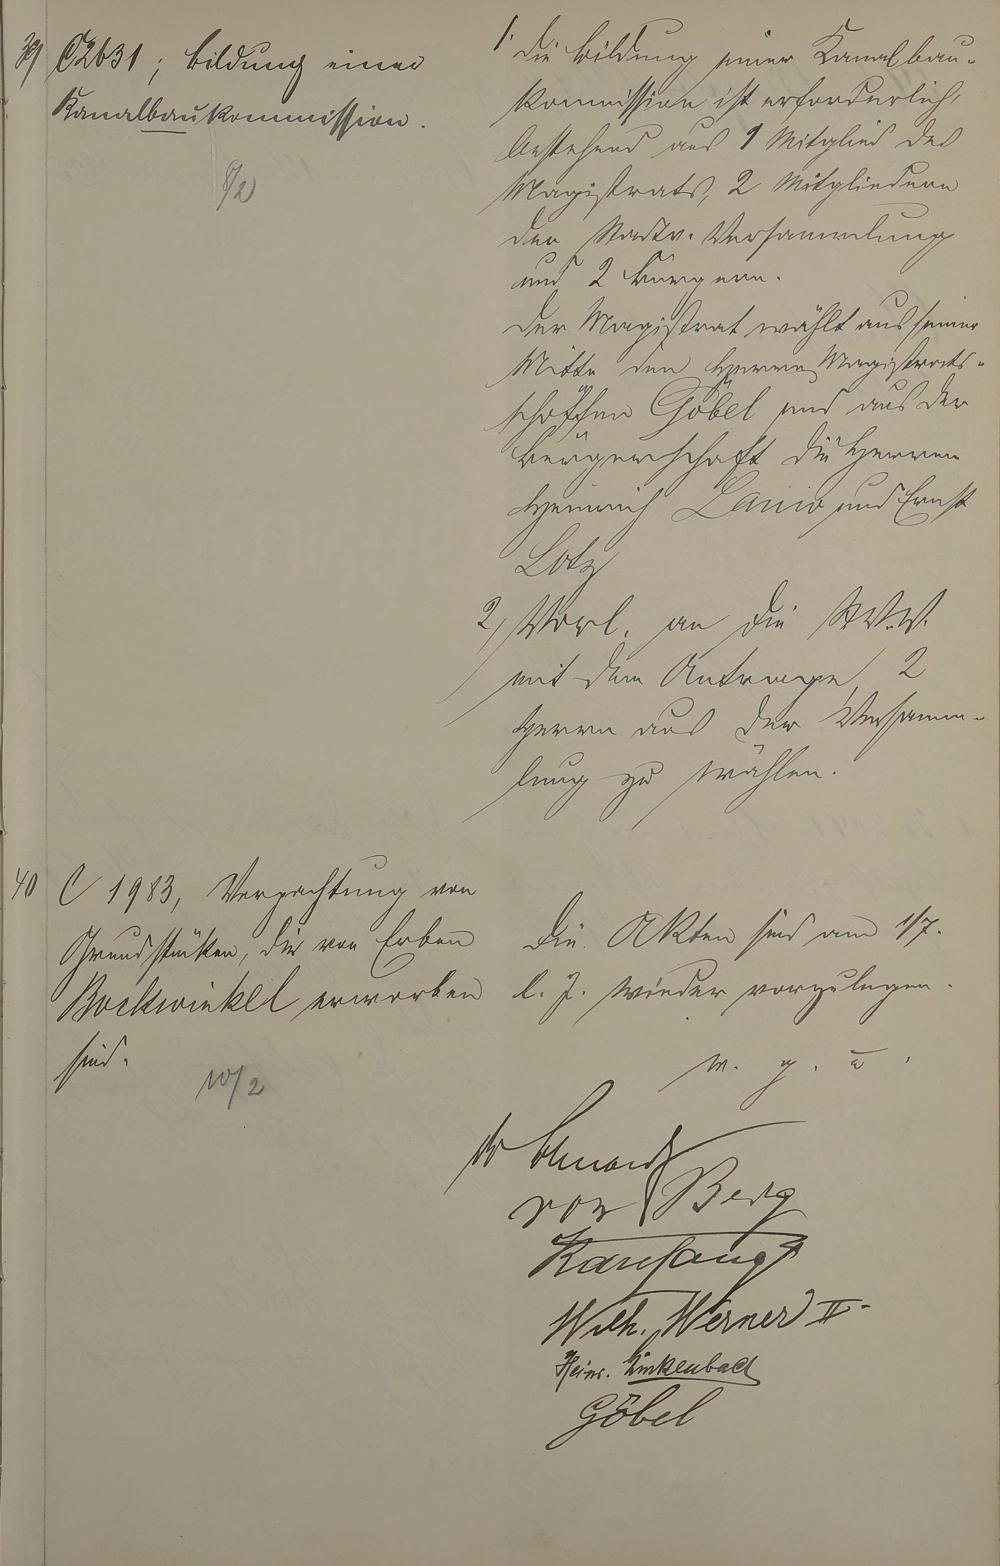 39) C2631; Bildung einer
Kanalbaukommission.
8/2
1. Die Bildung einer Kanalbau-
kommission ist erforderlich,
bestehend aus 1 Mitglied des
Magistrats, 2 Mitgliedern
der Stadtv. Versammlung
und 2 Bürgern.
Der Magistrat wählt aus seiner
Mitte den Herrn Magistrats-
schöffen Göbel und aus der
Bürgerschaft die Herren
Heinrich Lanio und Ernst
Lotz
2, Vorl. an die St.V.V.
mit dem Antrage, 2
Herrn aus der Versamm-
lung zu wählen.
40 C 1983, Verpachtung von
Grundstücken, die von Erben
Bockwinkel erworben
sind.
10/2
Die Akten sind am 1/7.
l. J. wieder vorzulegen.
w. g. u.
von Berg
Wilh. Werner II.
Heinr.
Göbel